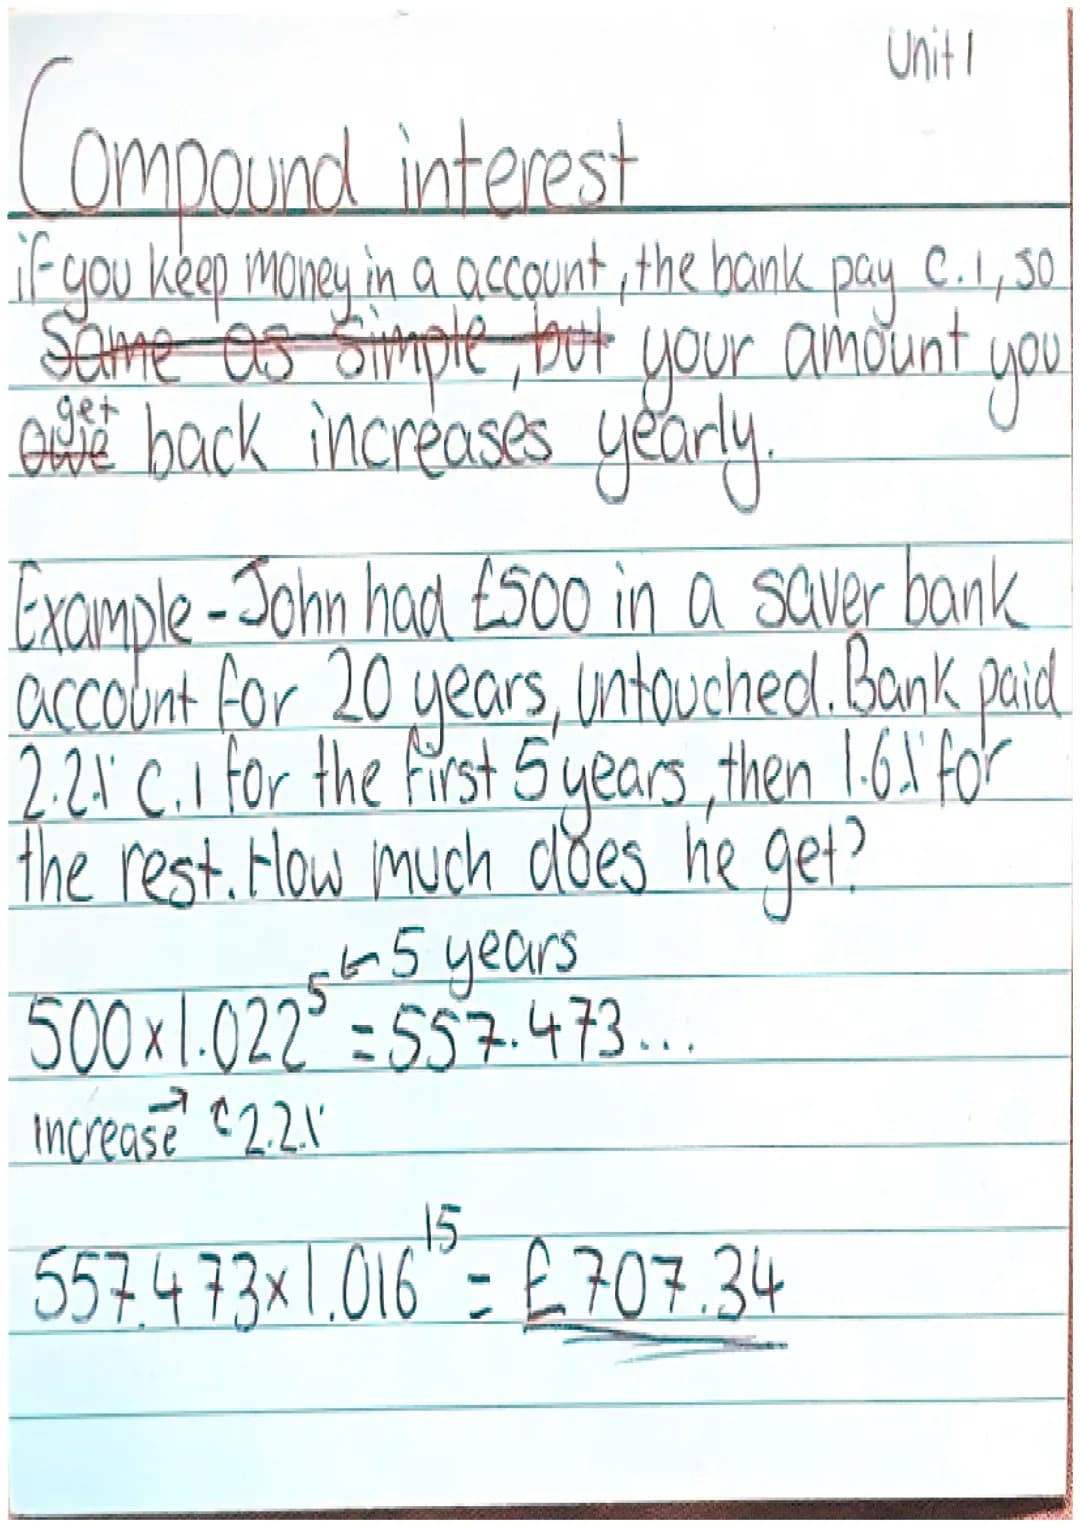 Unit 1
Compound interest
if you keep money in a account, the bank pay C.I, so
Same as simple, but your amount you
owe get back increases yearly.
Example - John had £500 in a saver bank
account for 20 years, untouched. Bank paid
2.2% C.I for the first 5 years, then 1.6% for
the rest. How much does he get?
← 5 years
500 x 1.022⁵ = 557.473...
increase → ↑ 2.2%
557.473 x 1.016¹⁵ = £707.34